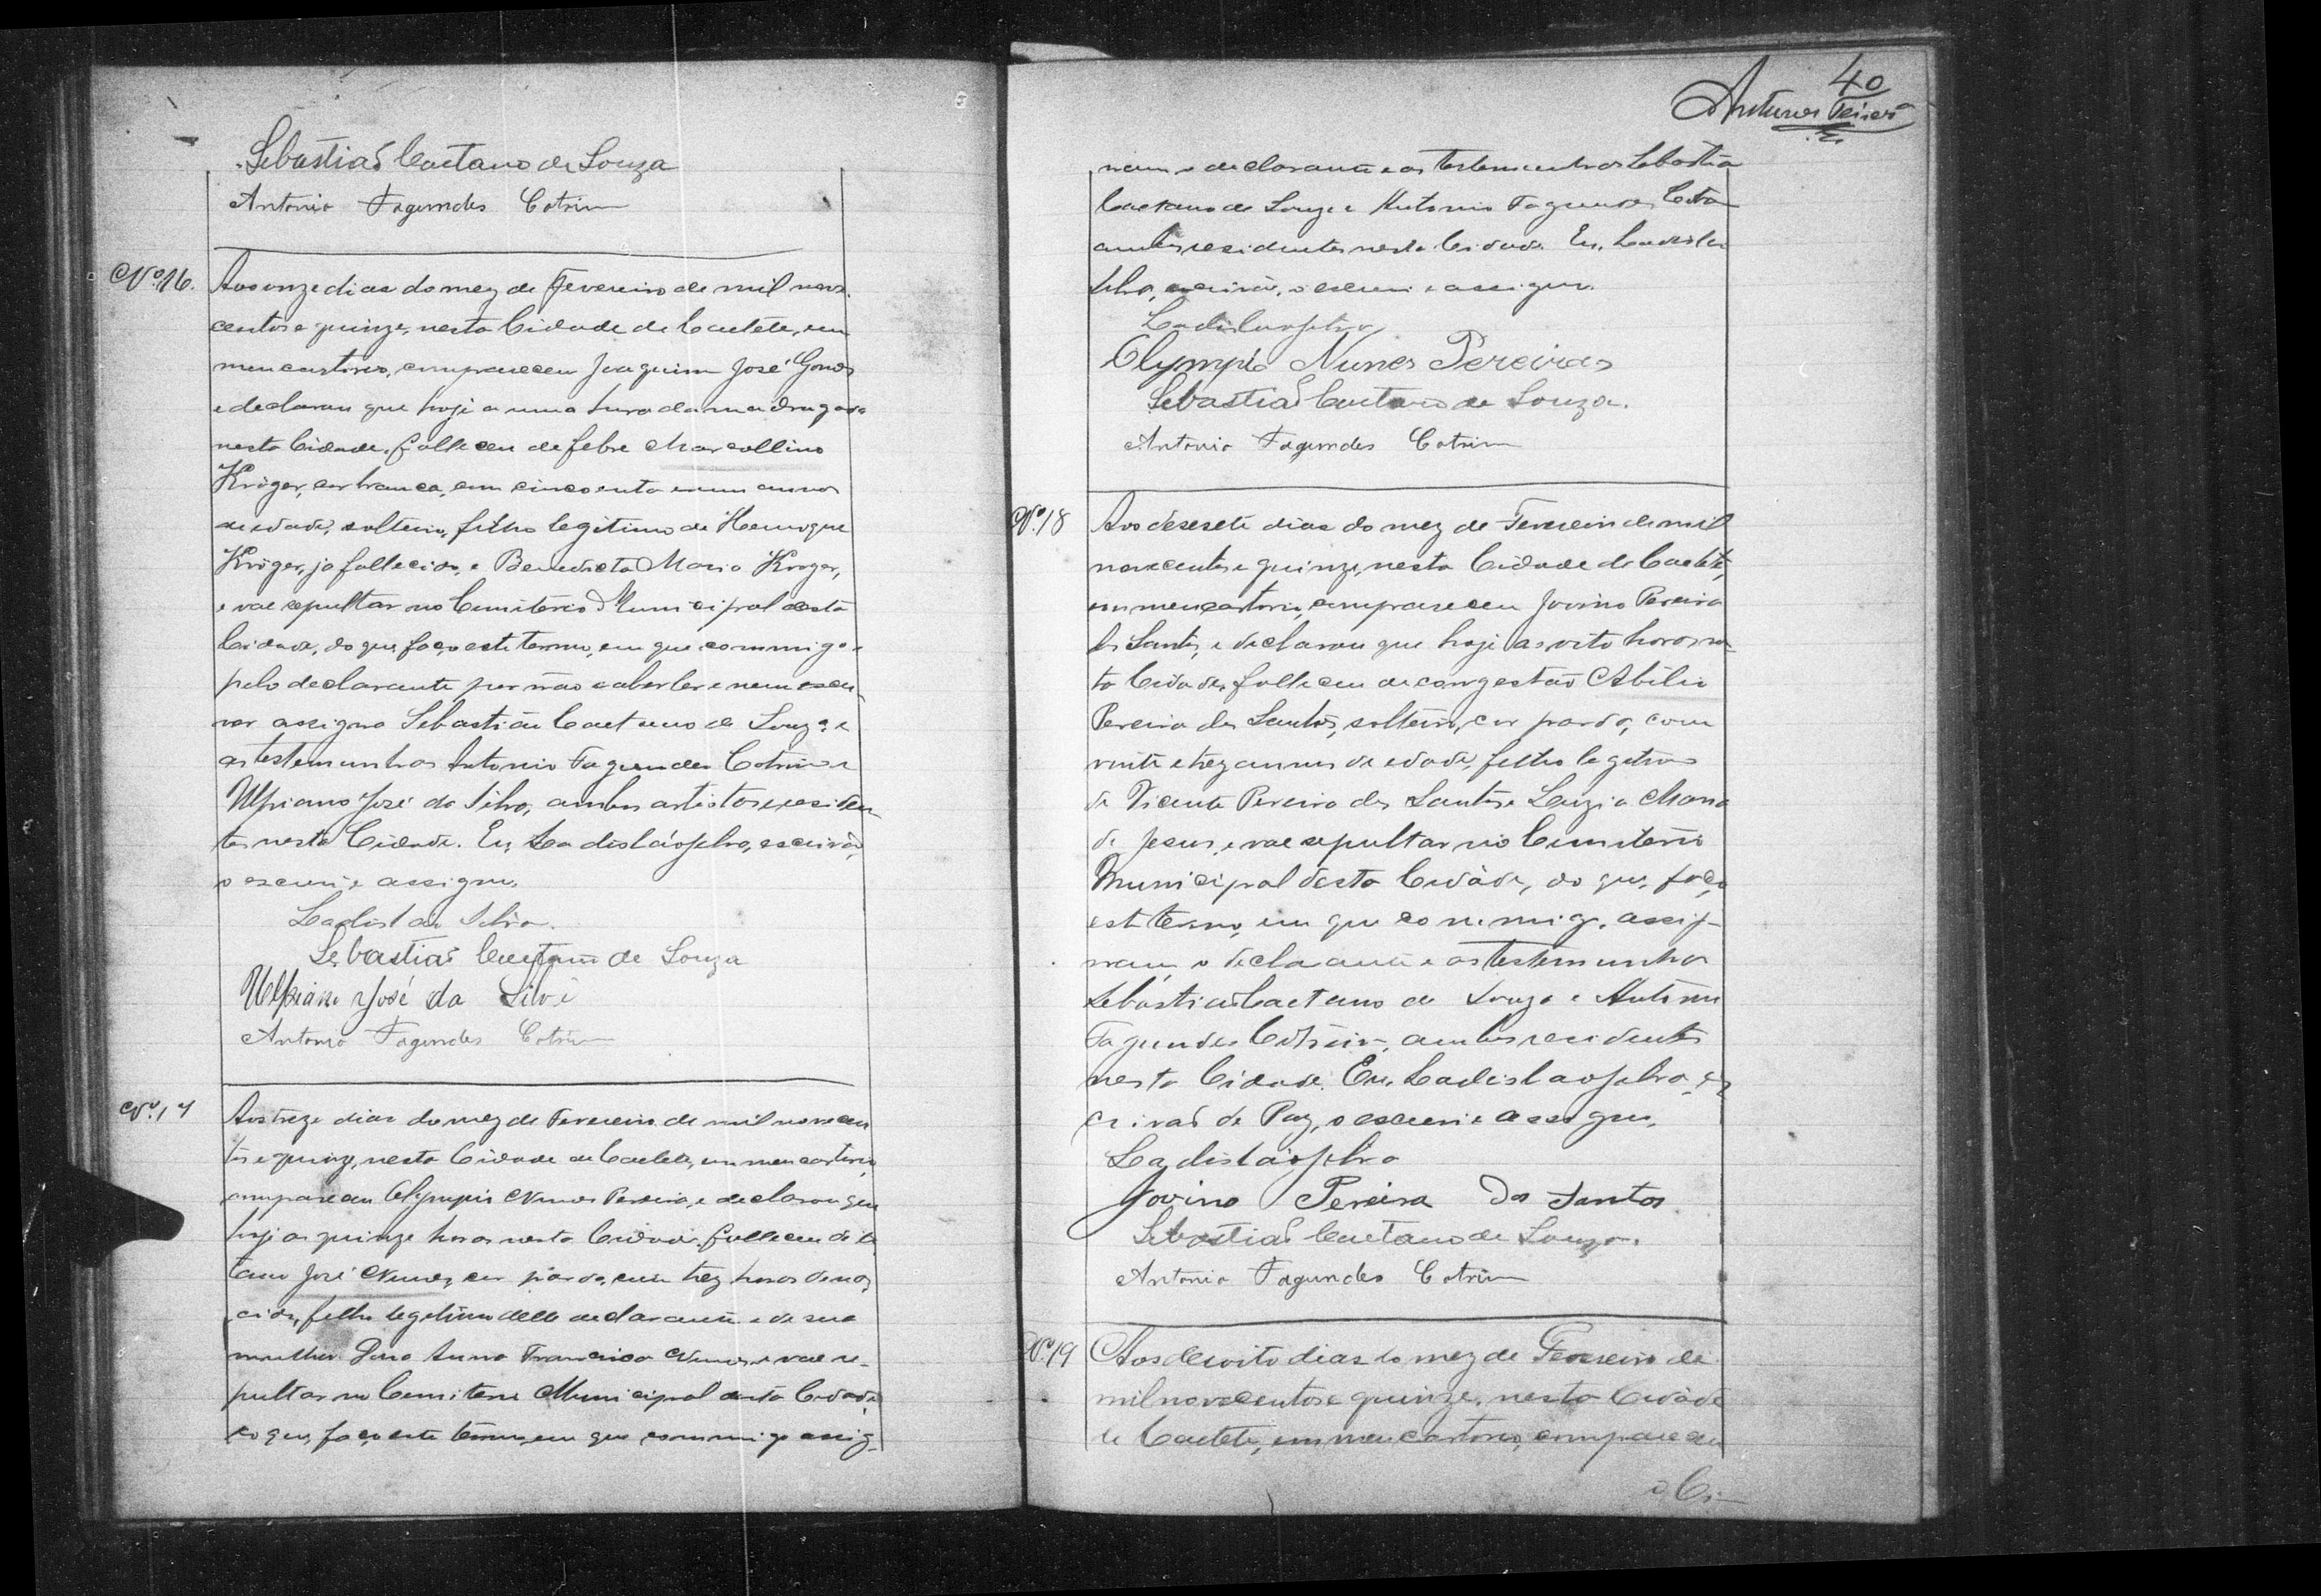 Sebastião Caetano de Souza
Antonio Fagundes Cotrim
Nº 16.
Aos onze dias do mez de Fevereiro de mil nove-
centos e quinze, nesta Cidade de Caeteté, em
meu cartorio, compareceu Joaquim José Gomes
e declarou que hoje a uma hora da madrugada
nesta Cidade, falleceu de febre Marcollino
Kröger, cor branca, com cincoenta e um annos
de edade, solteiro, filho legitimo de Henrique
Kröger, ja fallecido, e Benedicta Maria Kroger,
e vae sepultar no Cemiterio Municipal desta
Cidade, do que, faço este termo, em que commigo e
pelo declarante por não saber ler e nem escre-
ver assigna Sebastião Caetano de Souza e
as testemunhas Antonio Fagundes Cotrim e
Ulpiano José da Silva, ambos artistas e residen-
tes nesta Cidade. Eu, Ladisláo Silva, escrivão,
o escrevi e assigno.
Ladislau Silva.
Sebastião Caetano de Souza
Ulpiano José da Silva
Antonio Fagundes Cotrim
Nº 17
Aos treze dias do mez de Fevereiro de mil novecen
tos e quinze, nesta Cidade de Caeteté, em meu cartorio,
compareceu Olympio Nunes Pereira, e declarou que
hoje as quinze horas nesta Cidade, falleceu de te
tano José Nunes, cor parda, com trez horas de nas
cido, filho legitimo delle declarante e de sua
mulher Dona Anna Francisca Nunes e vae se-
pultar no Cemiterio Municipal desta Cidade
do que, faço este termo, em que commigo assig-
40
Antunes
nam o declarante e as testemunhas Sebastião
Caetano de Souza e Antonio Fagundes Cotrim
ambos residentes nesta Cidade. Eu, Ladislau
Silva, escrivão, o escrevi e assigno.
Ladislao Silva
Olympio Nunes Pereira
Sebastião Caetano de Souza.
Antonio Fagundes Cotrim
Nº 18
Aos desesete dias do mez de Fevereiro de mil
novecentos e quinze, nesta Cidade de Caeteté,
em meu cartorio, compareceu Jovino Pereira
dos Santos, e declarou que hoje as oito horas nes-
ta Cidade, falleceu de congestão Abilio
Pereira dos Santos, solteiro, cor parda, com
vinte e trez annos de edade, filho legitimo
de Vicente Pereira dos Santos e Luzia Maria
de Jesus, e vae sepultar no Cemiterio
Municipal desta Cidade, do que, faço
este termo, em que commigo assig-
nam, o declarante e as testemunhas
Sebastião Caetano de Souza e Antonio
Fagundes Cotrim, ambos residentes
nesta Cidade. Eu, Ladislao Silva, es-
crivão de Paz, o escrevi e assigno,
Ladisláo Silva
Jovino Pereira Dos Santos
Sebastião Caetano de Souza.
Antonio Fagundes Cotrim
Nº 19
Aos deseoito dias do mez de Fevereiro de
mil novecentos e quinze, nesta Cidade
de Caeteté, em meu cartorio, compareceu